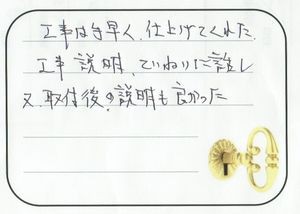 工事は手早く、仕上げてくれた
工事 説明、ていねいに話し
又、取付後の説明も良かった